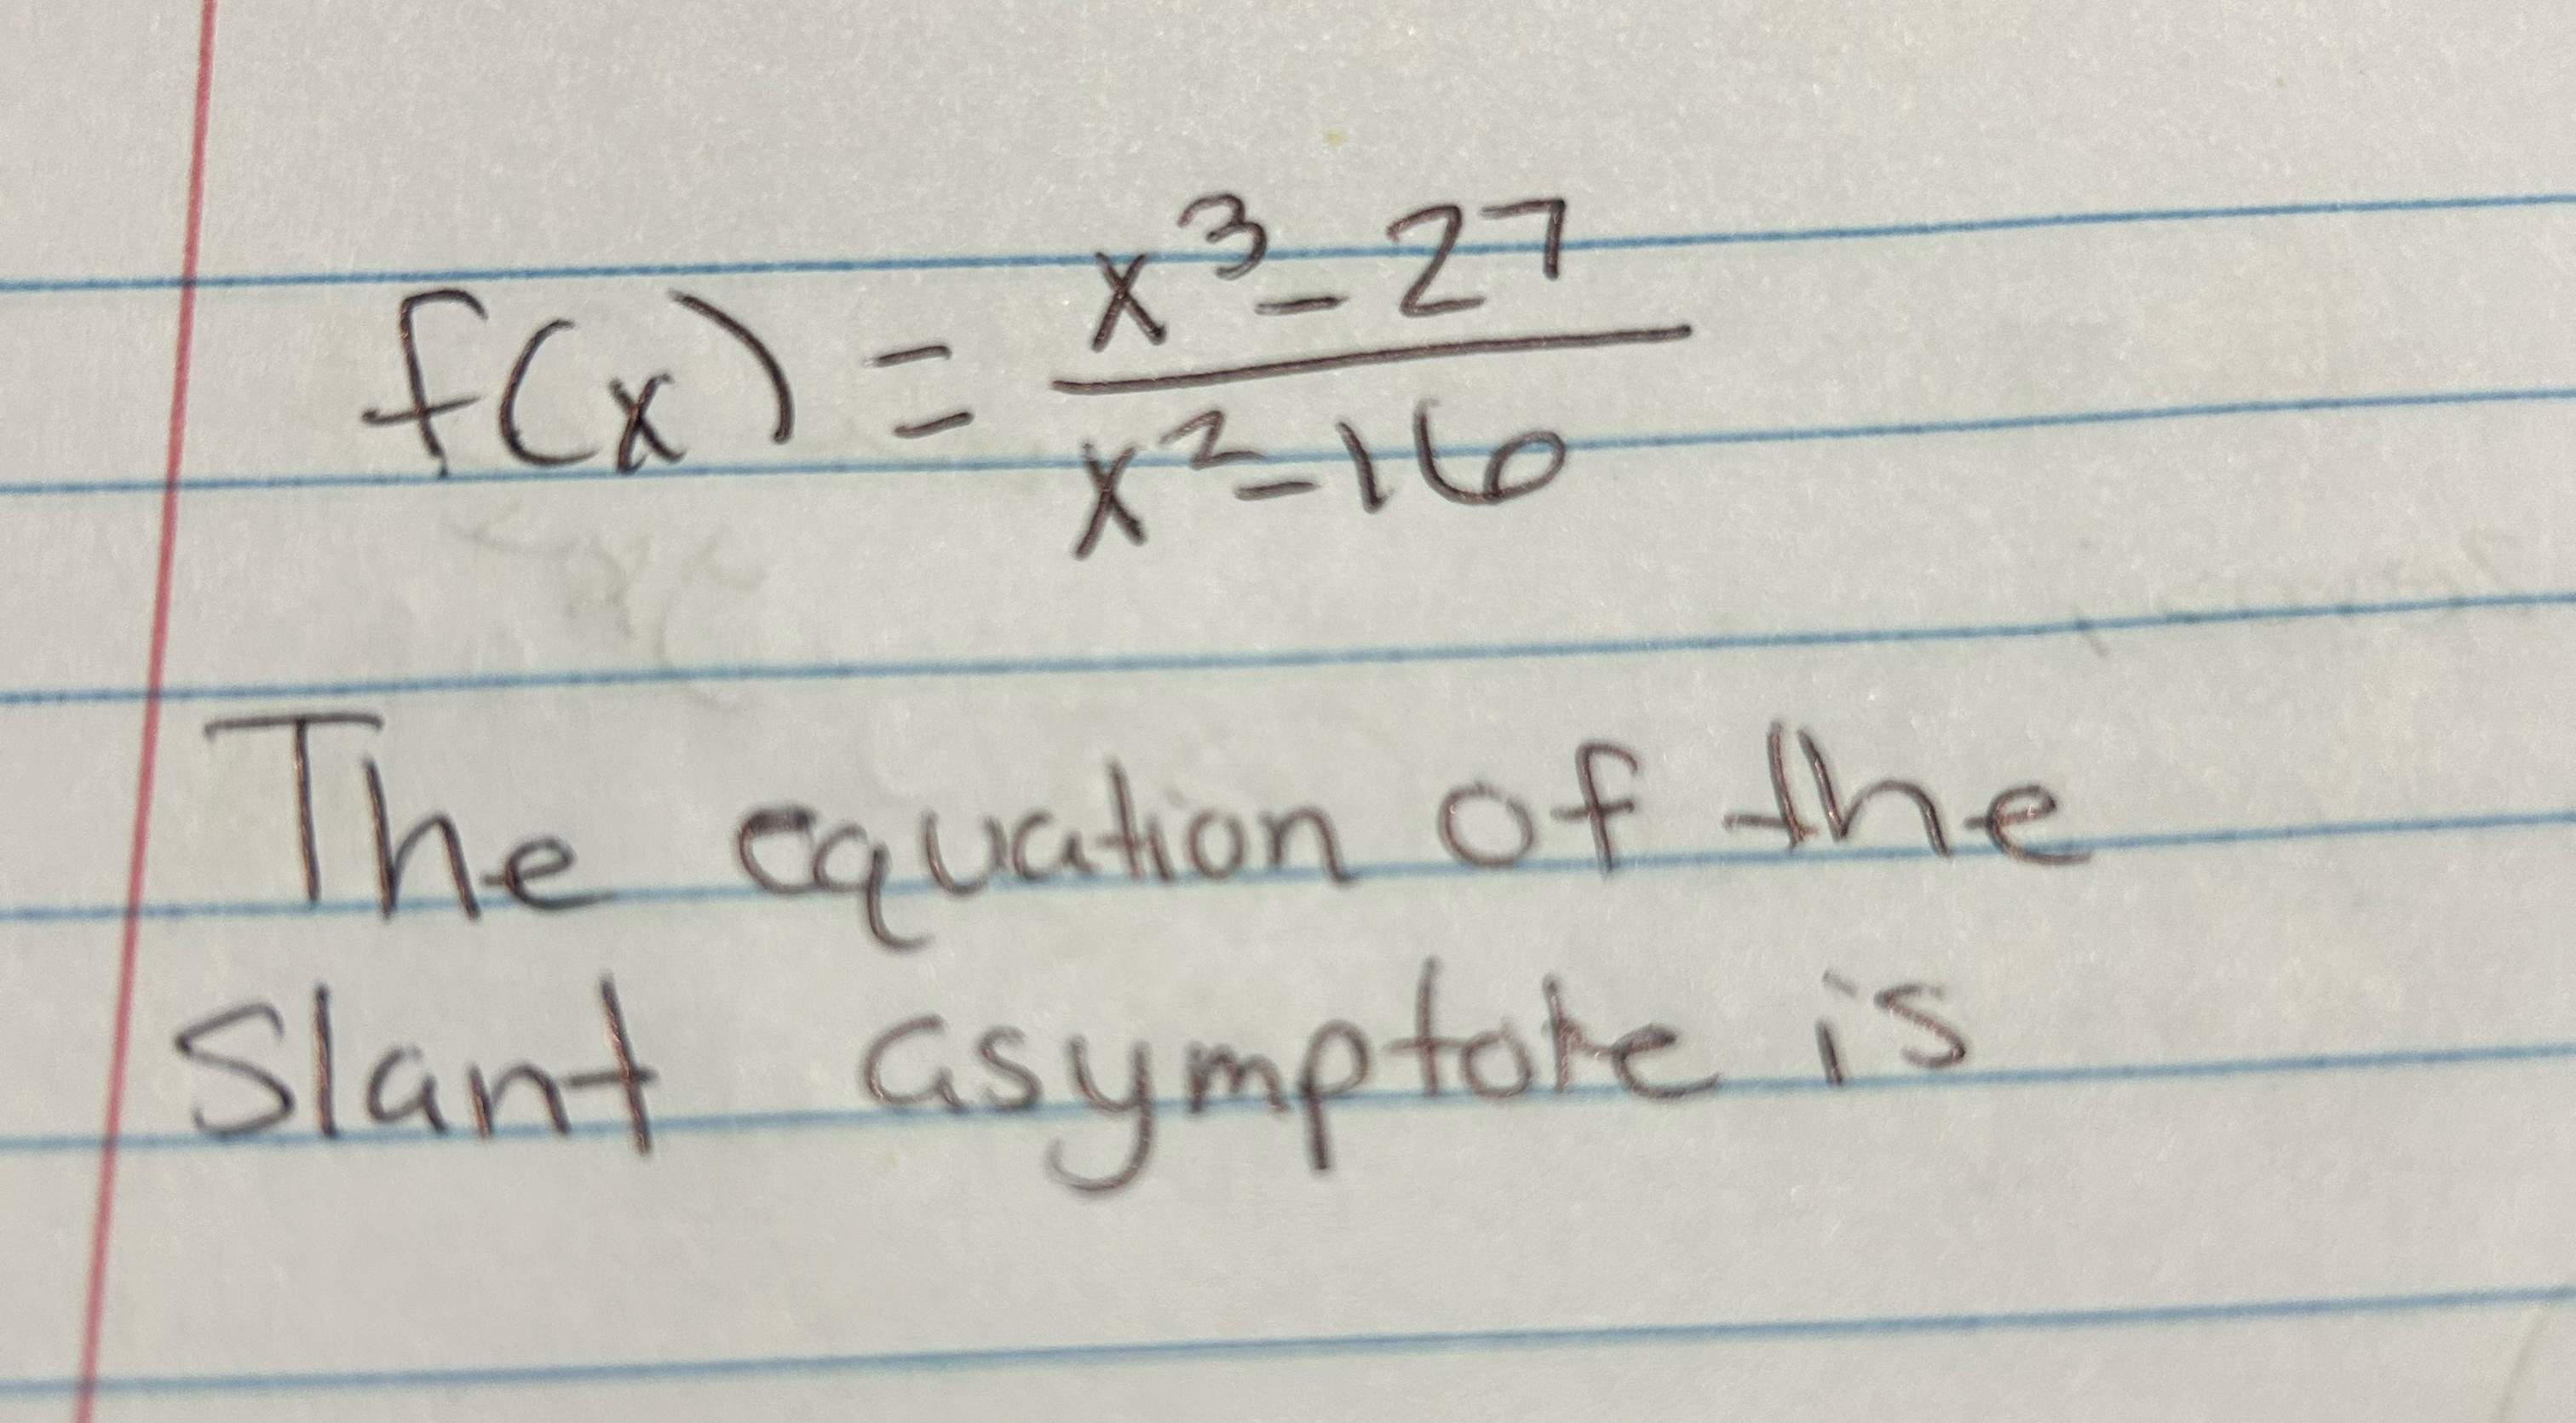 f(x) = x³-27 / x²-16
The equation of the
Slant asymptote is